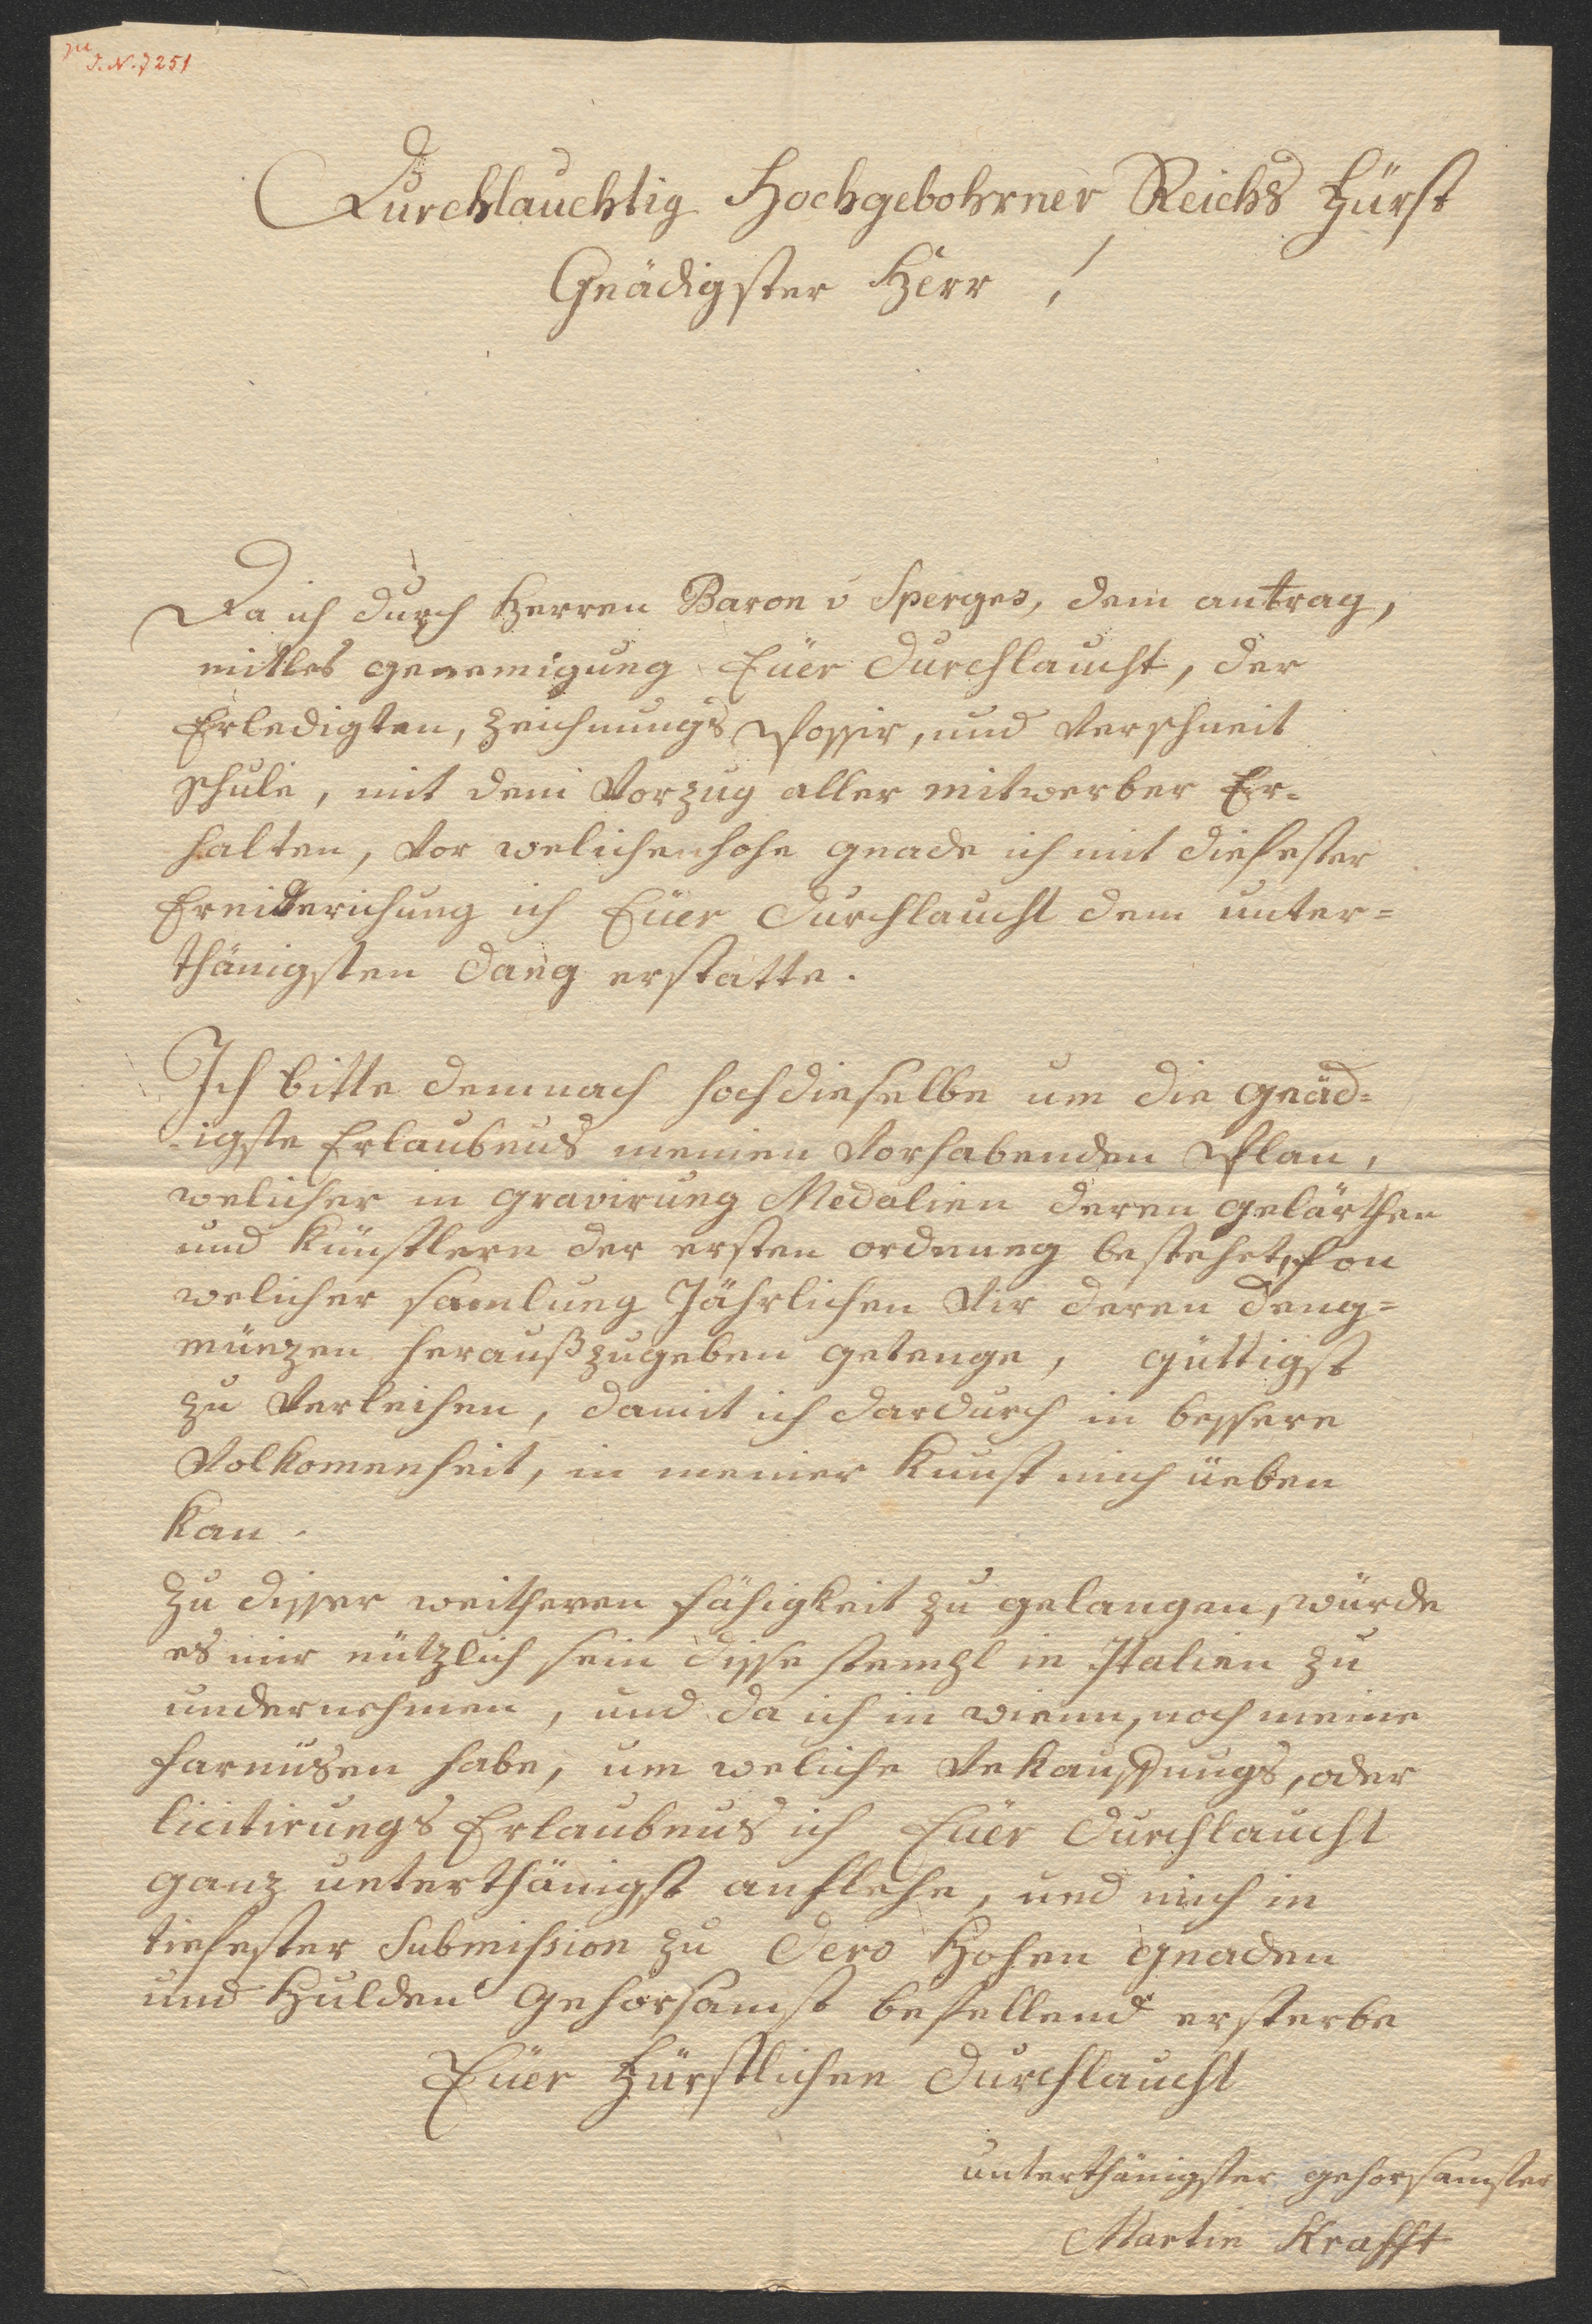 zu
I.N.7251
Durchlauchtig Hochgebohrner Reichs Fürst
Gnädigster Herr !
Da ich durch Herren Baron v Sperges, dem antrag,
mitles genemigung Eüer Durchlaucht, der
Erledigten, Zeichnungs Possir, und Verschneit
schule, mit dem Vorzug aller mitwerber Er-
halten, Vor welichen hohe gnade ich mit diefester
ich Eüer Durchlaucht dem unter=
thänigsten Dang erstatte.
Ich bitte demnach hochdieselbe um die gnäd=
-igste Erlaubnus meinen Vorhabenden Plan,
welicher in gravirung Medalien deren gelärthen
und künstlern der ersten ordnung bestehet, von
welicher samlung Jährlichen Vir deren Deng=
münzen heraußzugeben getenge, güttigst
zu Verleihen, damit ich dardurch in bessere
Volkomenheit, in meiner Kunst mich üeben
kan.
Zu disser weitheren fähigkeit zu gelangen, würde
es mir nützlich sein disse stempl in Italien zu
undernehmen, und da ich in wienn, noch meine
farnüsen habe, um weliche Vekauffungs, oder
licitirungs Erlaubnus ich Eüer Durchlaucht
ganz unterthänigst anflehe, und mich in
tiefester Submission zu Dero Hohen gnaden
und Hulden gehorsamst befellend ersterbe
Eüer Fürstlichen Durchlaucht
unterthänigster gehorsamster
Martin Krafft